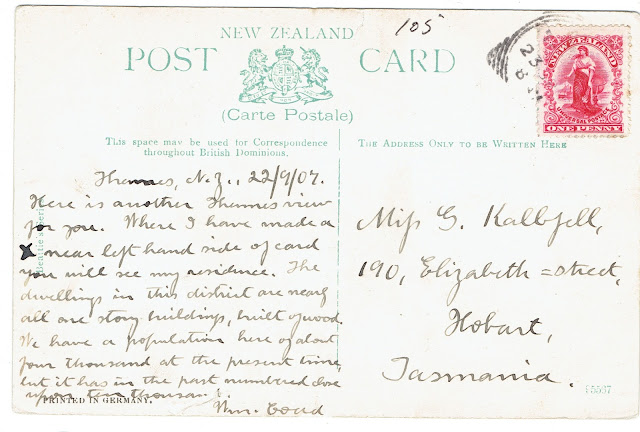 105
NEW ZEALAND
POST CARD
(Carte Postale)
NEW ZEALAND
UNIVERSAL POSTAGE
ONE PENNY
23
This space may be used for Correspondence
throughout British Dominions.
The Address Only to be Written Here
Thames, N.Z., 22/9/07.
Here is another Thames view
for you. Where I have made a
X near left hand side of card
you will see my residence. The
dwellings in this district are nearly
all one story buildings, built of wood.
We have a population here of about
four thousand at the present time,
but it has in the past numbered close
upon ten thousand.
Wm. Coad
Miss G. Kallfell,
190, Elizabeth=street,
Hobart,
Tasmania.
Beattie's Series
PRINTED IN GERMANY.
F5597